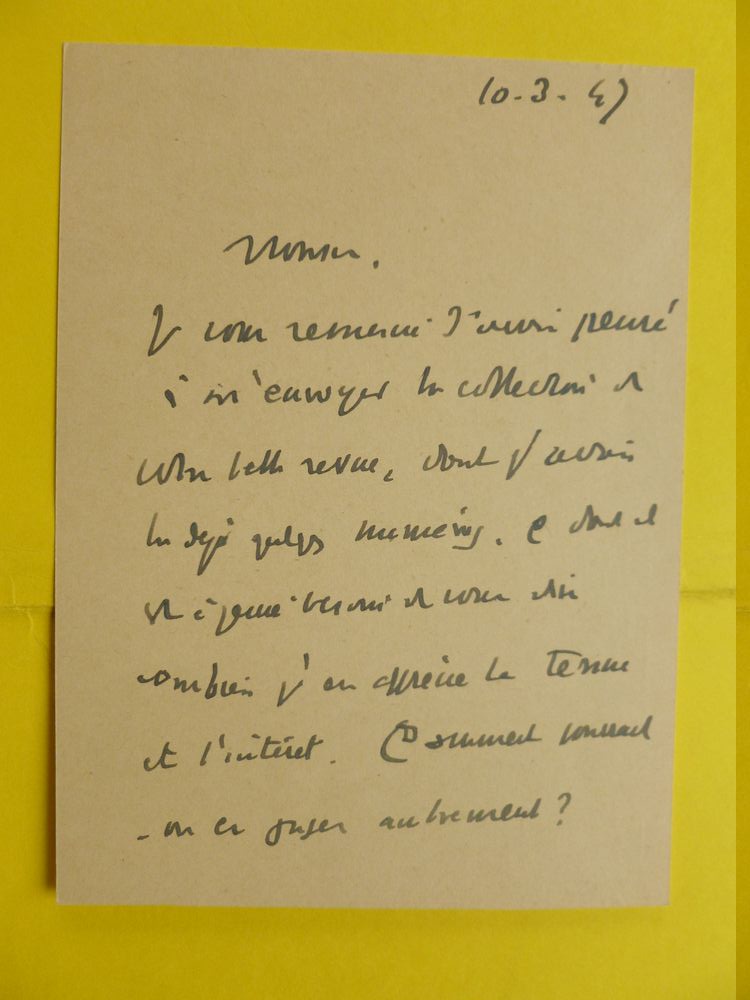 10-3-47
Monsieur,
Je vous remercie d'avoir pensé
à m'envoyer la collection de
votre belle revue, dont j'avais
lu déjà quelques numéros. Et dont il
est à peine besoin de vous dire
combien j'en apprécie la tenue
et l'intérêt. Comment pourrait
-on en juger autrement ?